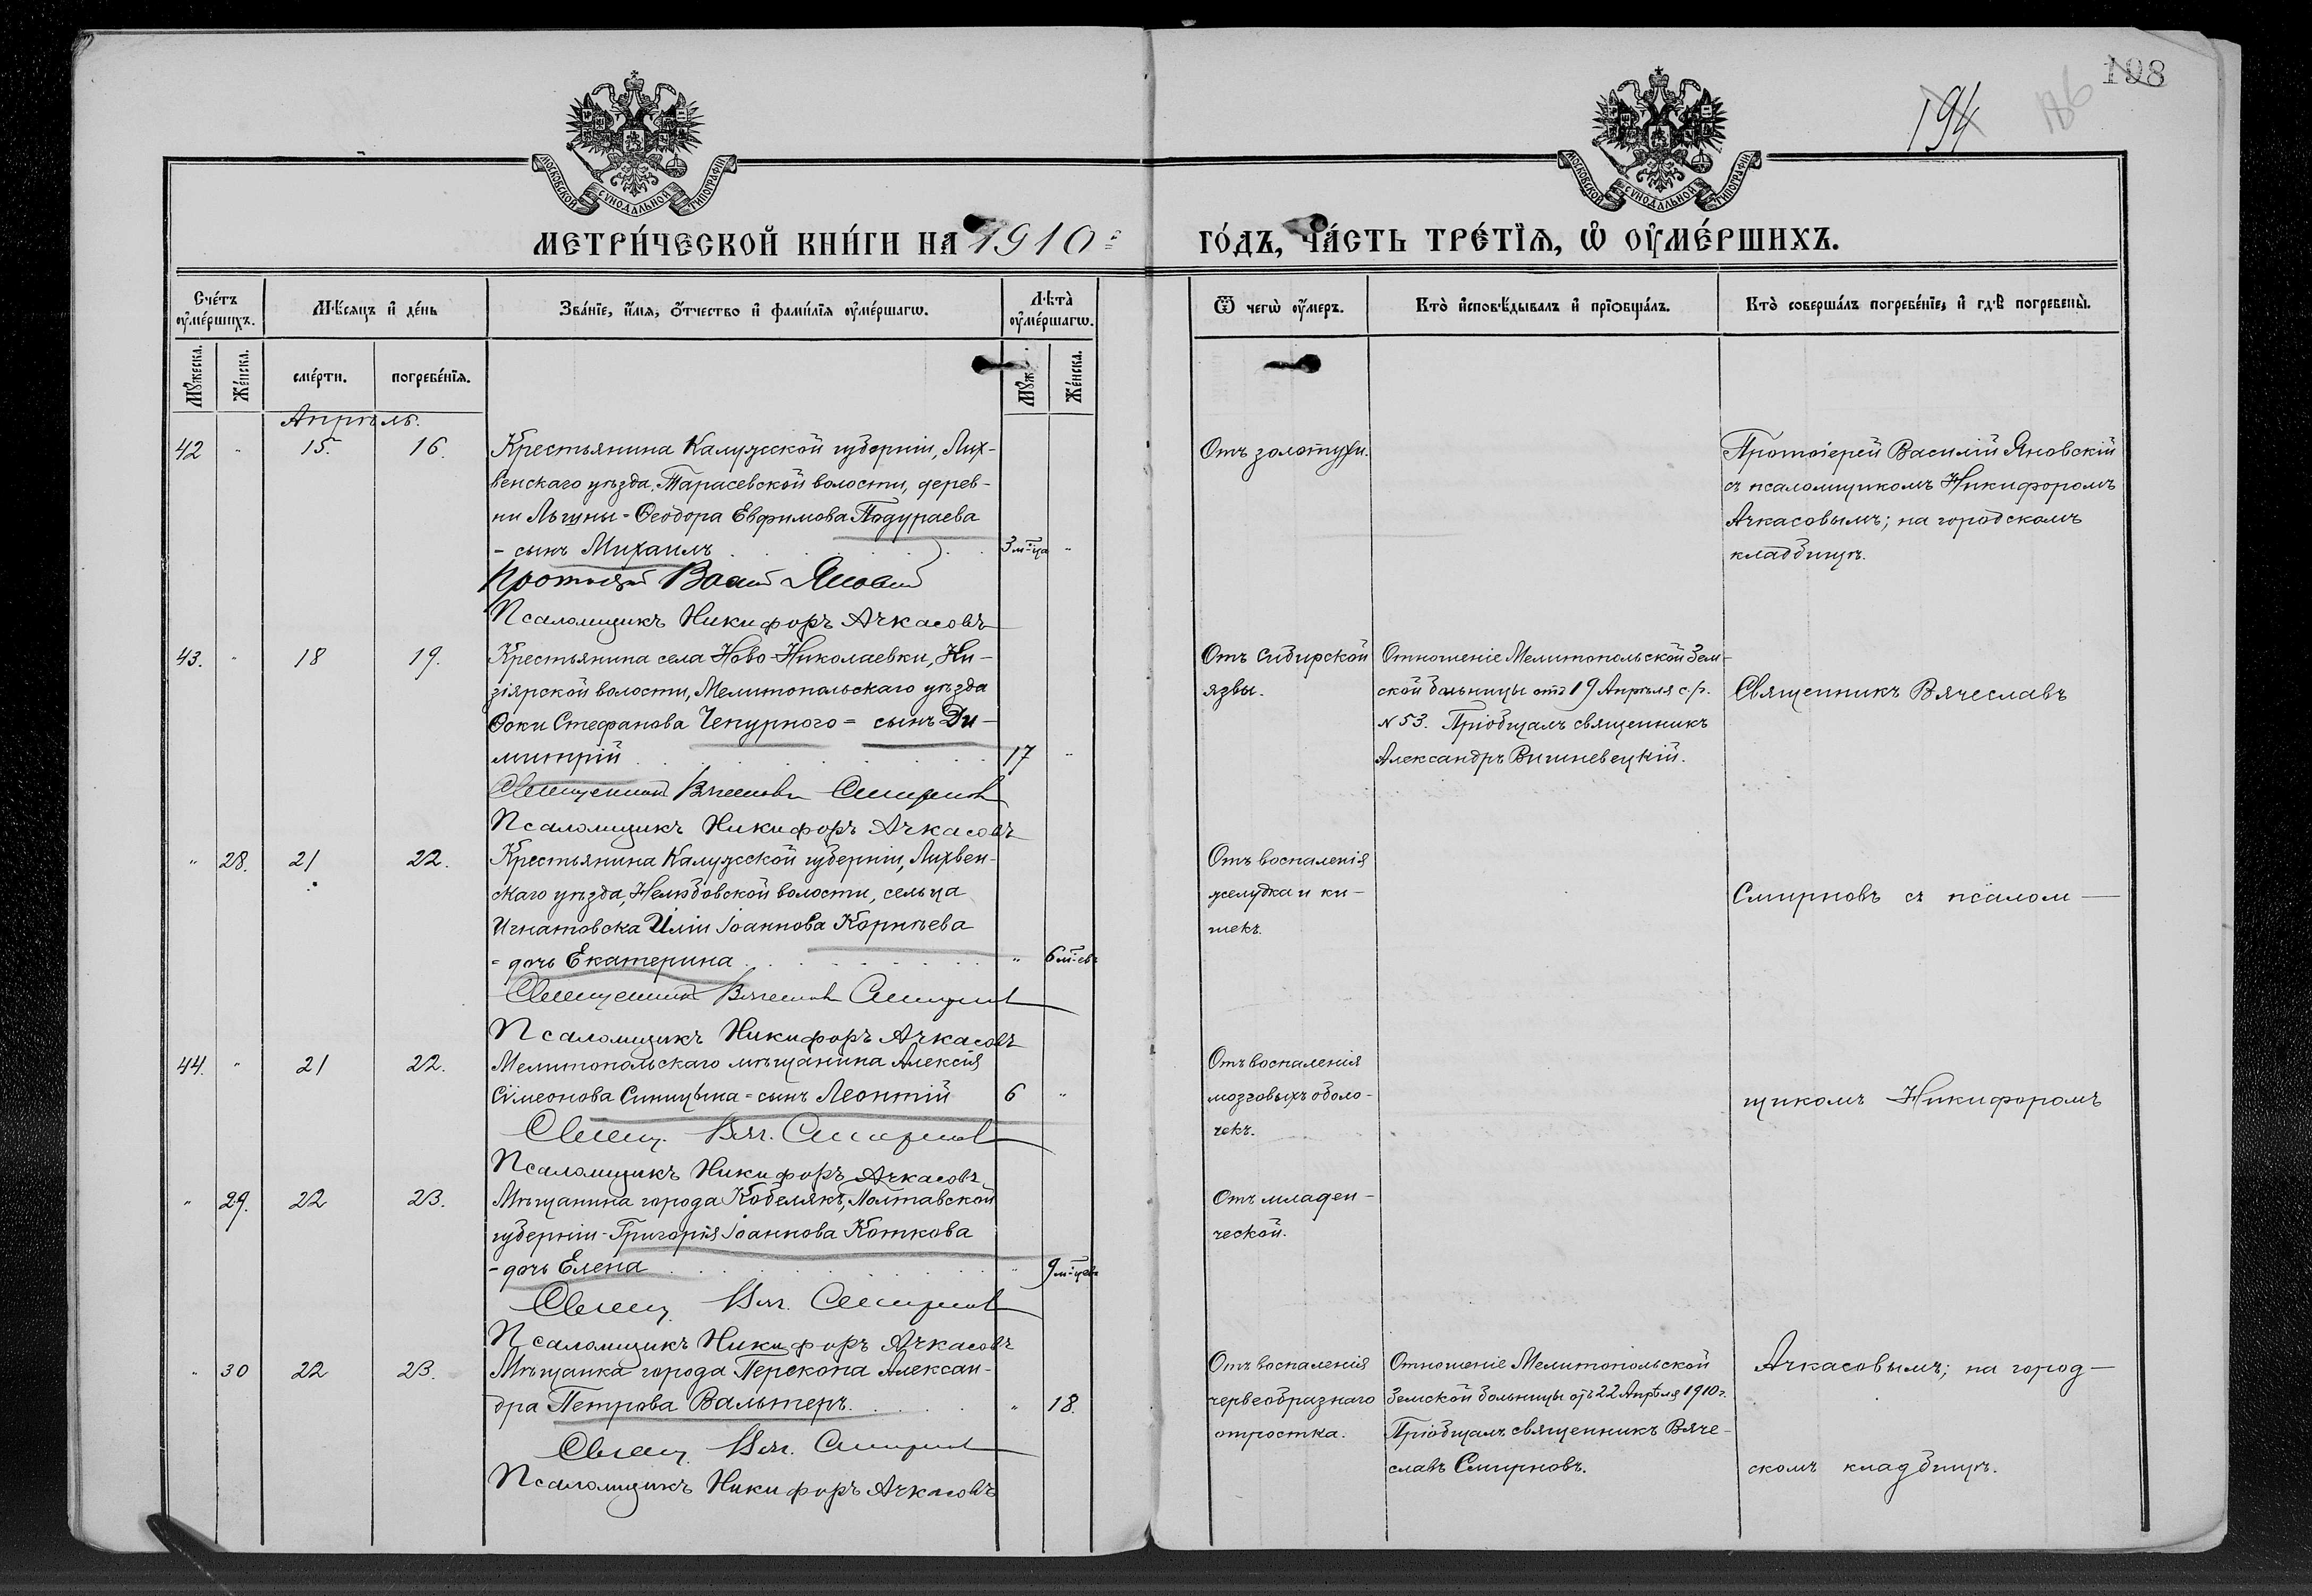 198
186
194
МОСКОВСКОЙ СѴНОДАЛЬНОЙ ТИПОГРАФІИ
МОСКОВСКОЙ СѴНОДАЛЬНОЙ ТИПОГРАФІИ
МЕТРИ́ЧЕСКОЙ КНИ́ГИ НА 1910 й
ГО́ДЪ, ЧА́СТЬ ТРЕ́ТІѦ, Ѡ҆ ОУ҆МЕ́РШИХЪ.
Сче́тъ оу҆ме́ршихъ.
Мѣ́сяцъ и҆ де́нь
Зва́нїе, и҆́мя, ѻ҆́тчество и҆ фами́лїя оу҆ме́ршагѡ.
Лѣта̀ оу҆ме́ршагѡ.
Ѿ чегѡ̀ оу҆́меръ.
Кто̀ и҆сповѣ́дывалъ и҆ прїѡбща́лъ.
Кто̀ соверша́лъ погребе́нїе, и҆ гдѣ̀ погребены̀.
Мꙋ́жеска.
Же́нска.
сме́рти.
погребе́нїя.
Мꙋ́ж.
Же́нска.
Апрѣль.
42 " 15. 16. Крестьянина Калужской губерніи, Лих-
венскаго уѣзда, Тарасевской волости, дерев-
ни Льгины - Ѳеодора Евфимова Подураева
- сынъ Михаилъ 3 м-ца "
Протоіерей Васил Яновскій
Псаломщикъ Никифоръ Ачкасовъ
Отъ золотухи.
Протоіерей Василій Яновскій
съ псаломщикомъ Никифоромъ
Ачкасовымъ; на городскомъ
кладбищѣ.
43. " 18 19. Крестьянина села Ново-Николаевки, Ни-
зіярской волости, Мелитопольскаго уѣзда
Ѳоки Стефанова Чепурного = сынъ Ди-
митрій 17 "
Священникъ Вячеславъ Смирновъ
Псаломщикъ Никифоръ Ачкасовъ
Отъ Сибирской
язвы.
Отношеніе Мелитопольской Зем-
ской больницы отъ 19 Апрѣля с.г.
№ 53. Пріобщалъ священникъ
Александръ Вишневецкій.
Священникъ Вячеславъ
" 28. 21 22. Крестьянина Калужской губерніи, Лихвен-
скаго уѣзда, Нелюбовской волости, сельца
Игнатовска Иліи Іоаннова Корнѣева
= дочь Екатерина " 6 м-цевъ
Священникъ Вячеславъ Смирновъ
Псаломщикъ Никифоръ Ачкасовъ
Отъ воспаленія
желудка и ки-
шекъ.
Смирновъ съ псалом-
44. " 21 22. Мелитопольскаго мѣщанина Алексія
Сѵмеонова Синицына = сынъ Леонтій 6 "
Свящ. Вяч. Смирновъ
Псаломщикъ Никифоръ Ачкасовъ
Отъ воспаленія
мозговыхъ оболо-
чекъ.
щикомъ Никифоромъ
" 29. 22 23. Мѣщанина города Кобелякъ, Полтавской
губерніи - Григорія Іоаннова Коткова
- дочь Елена " 9 м-цевъ
Свящ. Вяч. Смирновъ
Псаломщикъ Никифоръ Ачкасовъ
Отъ младен-
ческой.
" 30 22 23. Мѣщанка города Перекопа Алексан-
дра Петрова Вальтеръ. " 18.
Свящ. Вяч. Смирновъ
Псаломщикъ Никифоръ Ачкасовъ
Отъ воспаленія
червеобразнаго
отростка.
Отношеніе Мелитопольской
Земской больницы отъ 22 Апрѣля 1910 г.
Пріобщалъ священникъ Вяче-
славъ Смирновъ.
Ачкасовымъ; на город-
скомъ кладбищѣ.